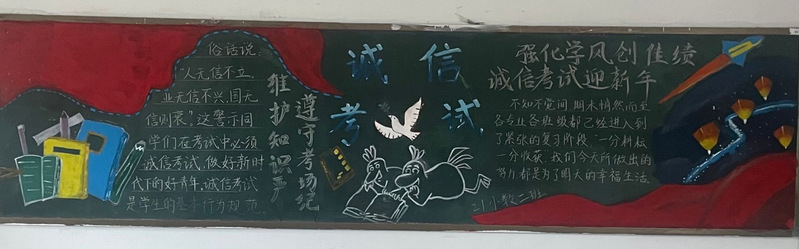 俗话说,
"人无信不立,
业无信不兴,国无
信则衰"这警示同
学们在考试中必须
诚信考试,做好新时
代下的好青年,诚信考试
是学生的基本行为规范.
维护知识尊严
遵守考场纪
诚信
考试
强化学风创佳绩
诚信考试迎新年
不知不觉间 期末悄然而至
各专业各班级都已经进入到
了紧张的复习阶段,一分耕耘
一分收获,我们今天所做出的
努力都是为了明天的幸福生活.
21小教二班